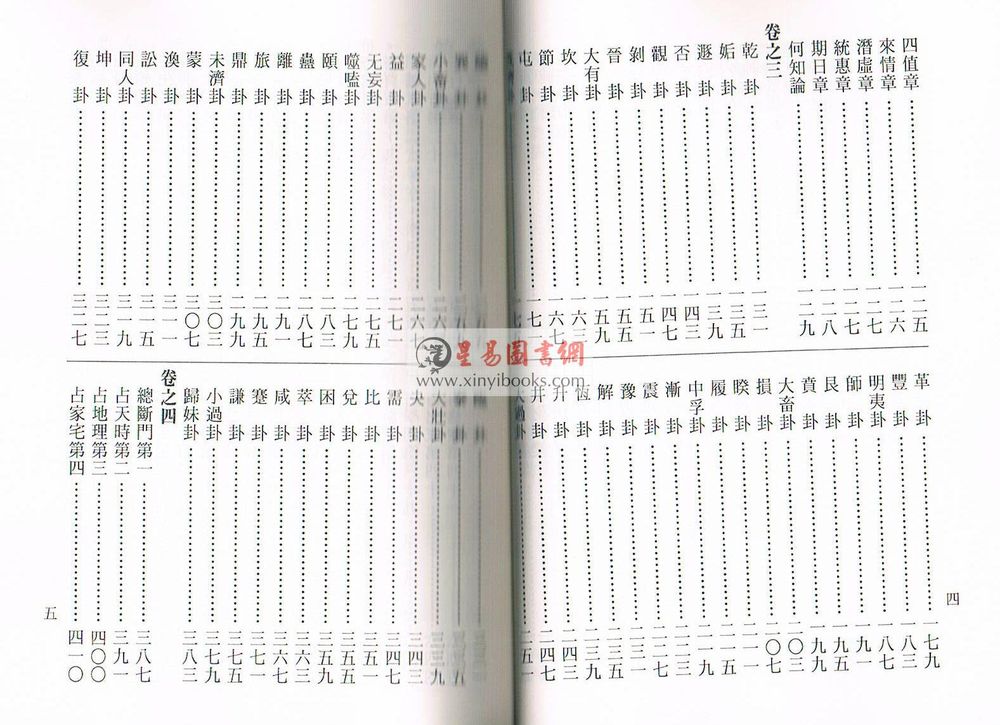 四值章……一二五
來情章……一二六
潛虛章……一二七
統惠章……一二七
期日章……一二八
何知論……一二九
卷之三
乾卦……一三一
姤卦……一三五
遯卦……一三九
否卦……一四三
觀卦……一四七
剝卦……一五一
晉卦……一五五
大有卦……一五九
坎卦……一六三
節卦……一六七
屯卦……一七一
革卦……一七九
豐卦……一八三
明夷卦……一八七
師卦……一九一
艮卦……一九五
賁卦……一九九
大畜卦……二〇三
損卦……二〇七
睽卦……二一一
履卦……二一五
中孚卦……二一九
漸卦……二二三
震卦……二三一
豫卦……二三五
解卦……二三九
恆卦……二四三
升卦……二四七
井卦……二五一
大過卦
四
小畜卦
家人卦……二六七
益卦……二七一
无妄卦……二七五
噬嗑卦……二七九
頤卦……二八三
蠱卦……二八七
離卦……二九一
旅卦……二九五
鼎卦……二九九
未濟卦……三〇三
蒙卦……三〇七
渙卦……三一一
訟卦……三一五
同人卦……三一九
坤卦……三二三
復卦……三二七
大壯卦……三三九
夬卦……三四三
需卦……三四七
比卦……三五一
兌卦……三五五
困卦……三五九
萃卦……三六三
咸卦……三六七
蹇卦……三七一
謙卦……三七五
小過卦……三七九
歸妹卦……三八三
卷之四
總斷門第一……三八七
占天時第二……三九一
占地理第三……四〇〇
占家宅第四……四一〇
五
星易圖書網
www.xinyibooks.com